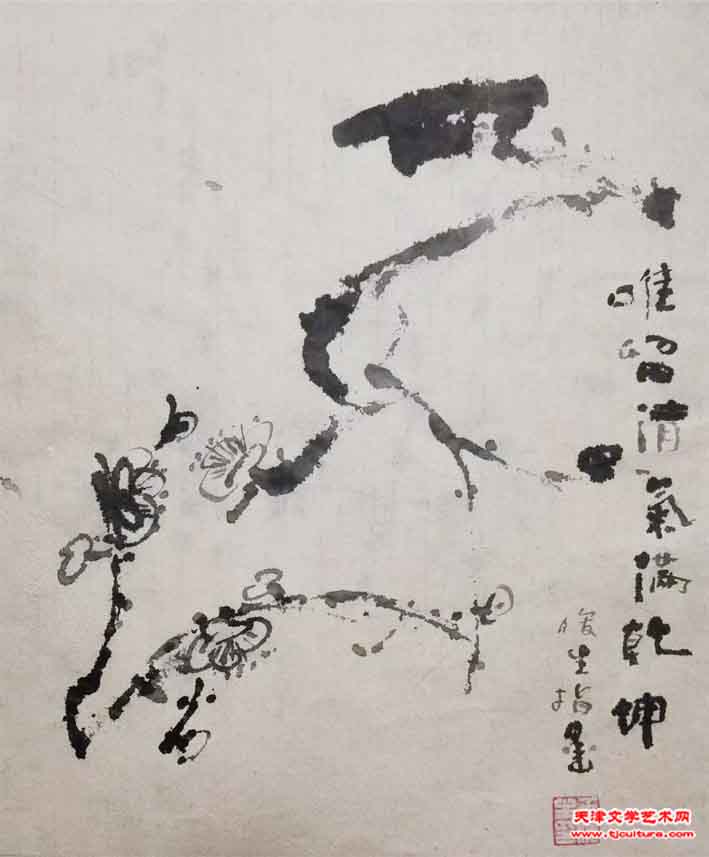 唯留清氣滿乾坤
生指墨
天津文学艺术网
www.tjculture.com